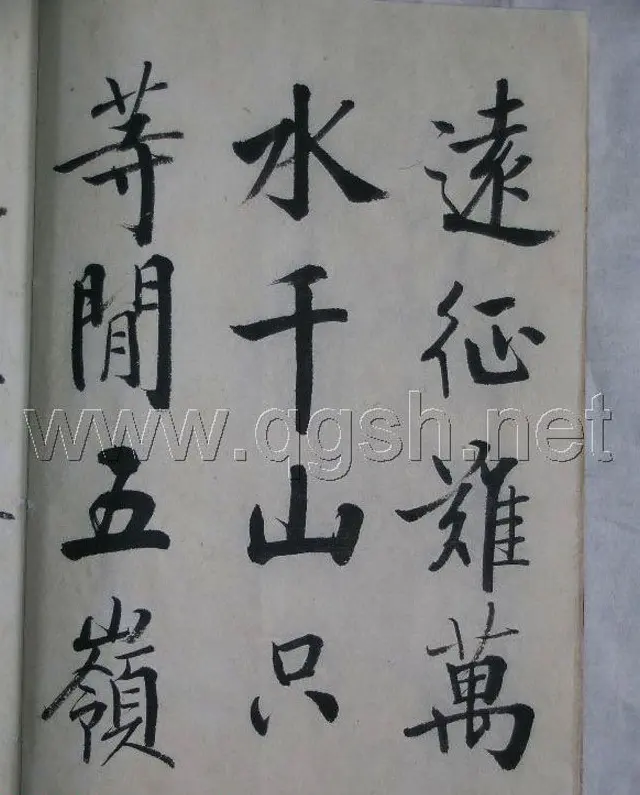 遠征難萬
水千山只
等閒五嶺
www.qgsh.net